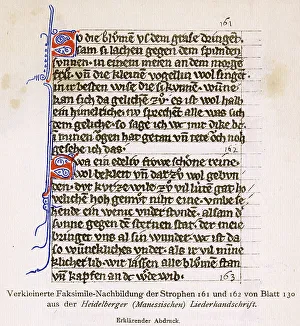 161
So die blůmen vs dem grase dringent
sam si lachen gegen dem spilnden
sunnen. in einem meien an dem morgē
frů. vñ die kleinē vogellin wol singēt
in ir besten wise die si kvnnē. wūne
kan sich da gelichē zů. es ist wol halb
ein himelriche. nv sprechēt alle was sich
dem geliche. so sage ich we mir dike bas
in minen ǒgen hat getan vñ tete ǒch noh
gesehe ich das.
162
Swa ein edeliv frowe schōne reine.
wol bekleit vñ dar zů wol gebun
den. dvr kvrzewile zů vil lůtē gat. ho
veliche hoh gemůt niht eine. vmbe se
hende ein wenic vnder stunde. alsam d
sunne gegen dē sternen stat. der meie
bringe vns al sin wunder. wc ist da
so wunneklichēs vnder. als ir vil minē
klicher lib. wir lassen alle blůmē stan
vñ kapfen an dc werde wib.
163
Verkleinerte Faksimile-Nachbildung der Strophen 161 und 162 von Blatt 130
aus der Heidelberger (Manessischen) Liederhandschrift.
Erklärender Abdruck.